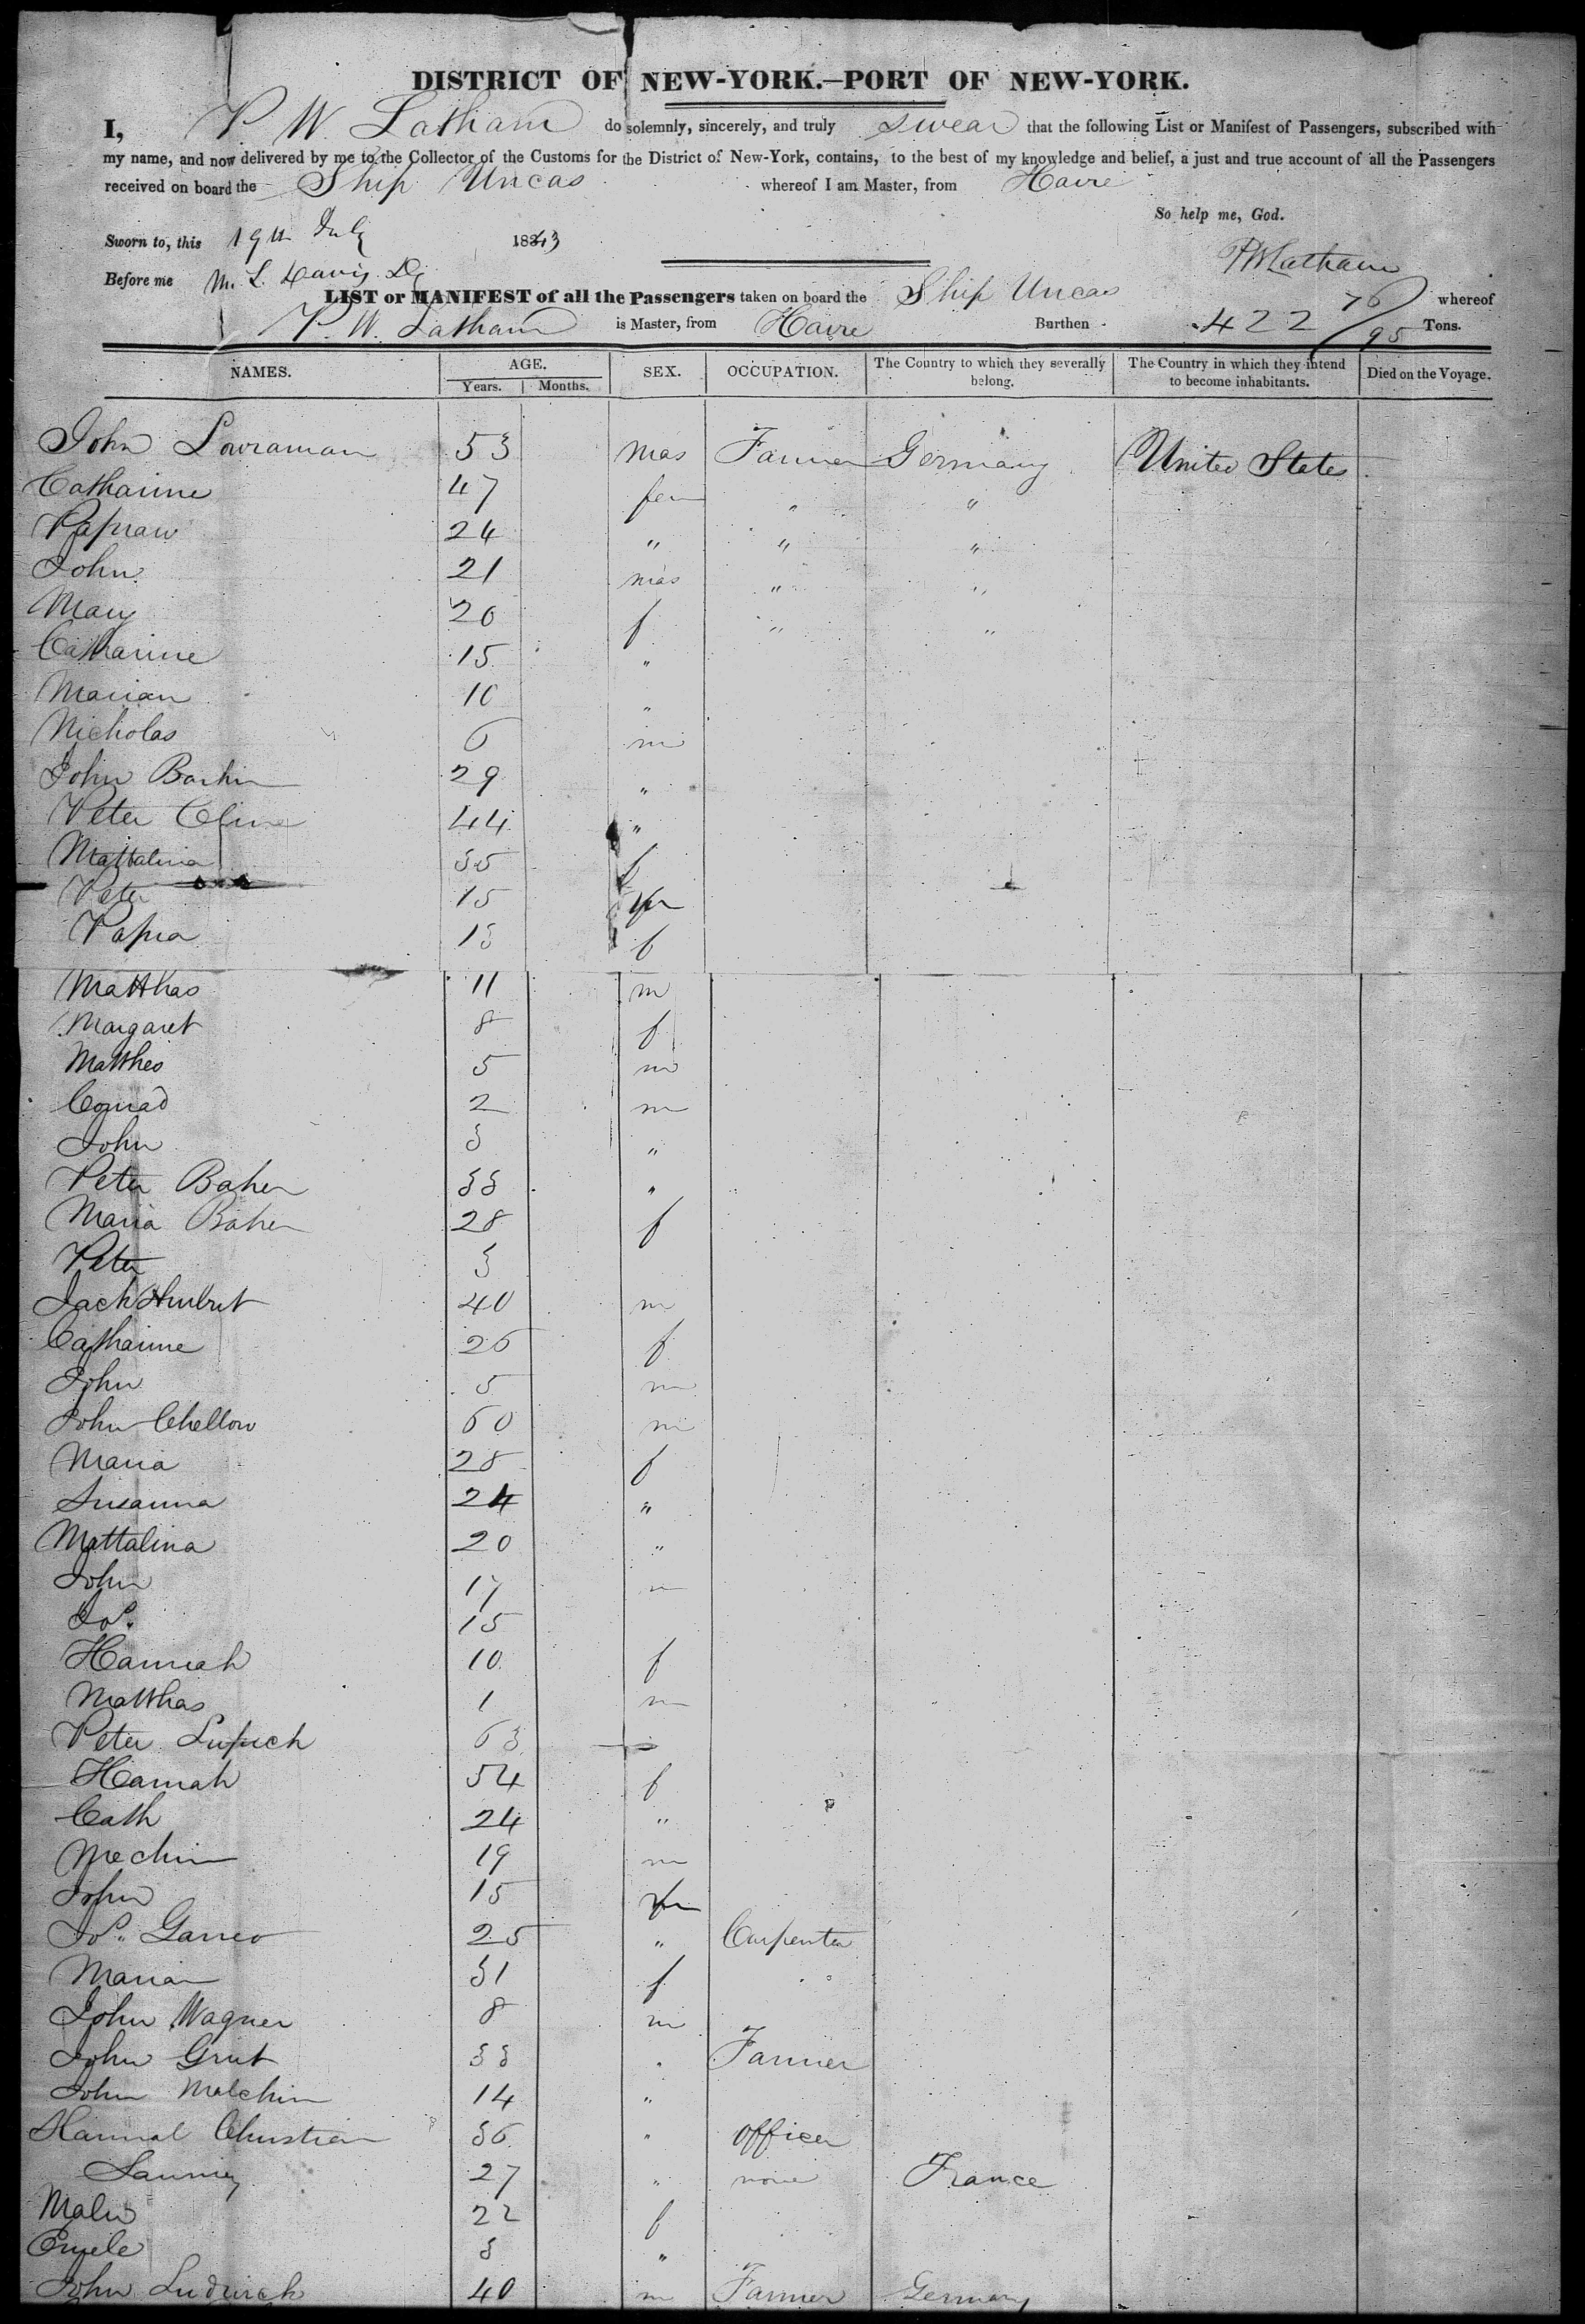 DISTRICT OF NEW-YORK.—PORT OF NEW-YORK.
I, P. W. Latham do solemnly, sincerely, and truly swear that the following List or Manifest of Passengers, subscribed with
my name, and now delivered by me to the Collector of the Customs for the District of New-York, contains, to the best of my knowledge and belief, a just and true account of all the Passengers
received on board the Ship Uncas whereof I am Master, from Havre
So help me, God.
Sworn to, this 19th July 1843
PWLatham
Before me M. L. Davis
LIST or MANIFEST of all the Passengers taken on board the Ship Uncas whereof
P. W. Latham is Master, from Havre Burthen 422 76/95 Tons.
NAMES. AGE. SEX. OCCUPATION. The Country to which they severally belong. The Country in which they intend to become inhabitants. Died on the Voyage.
Years. Months.
John 53 mas Farmer Germany United States
Catharine 47 fem " "
24 " " "
John 21 mas " "
Mary 20 f " "
Catharine 15 "
Marian 10 "
Nicholas 6 m
John 29 "
Peter Cline 44 "
Mattalina 35 f
Peter 15 m
13 f
Matthas 11 m
Margaret 8 f
Matthes 5 m
Conrad 2 m
John 3 "
Peter Baker 33 "
Maria Baker 28 f
Peter 3
Jack 40 m
Catharine 26 f
John 5 m
John Chellow 60 m
Maria 28 f
Susanna 24 "
Mattalina 20 "
John 17 m
Jos. 15
Hannah 10 f
Matthas 1 m
Peter 63
Hannah 54 f
Cath 24 "
Mechin 19 m
John 15 m
Jos. 25 " Carpenter
Marian 31 f
John Wagner 8 m
John Grut 33 " Farmer
John Melchin 14 "
Christian 36 " officer
27 " none France
22 f
Emele 3 "
John Ludwick 40 m Farmer Germany